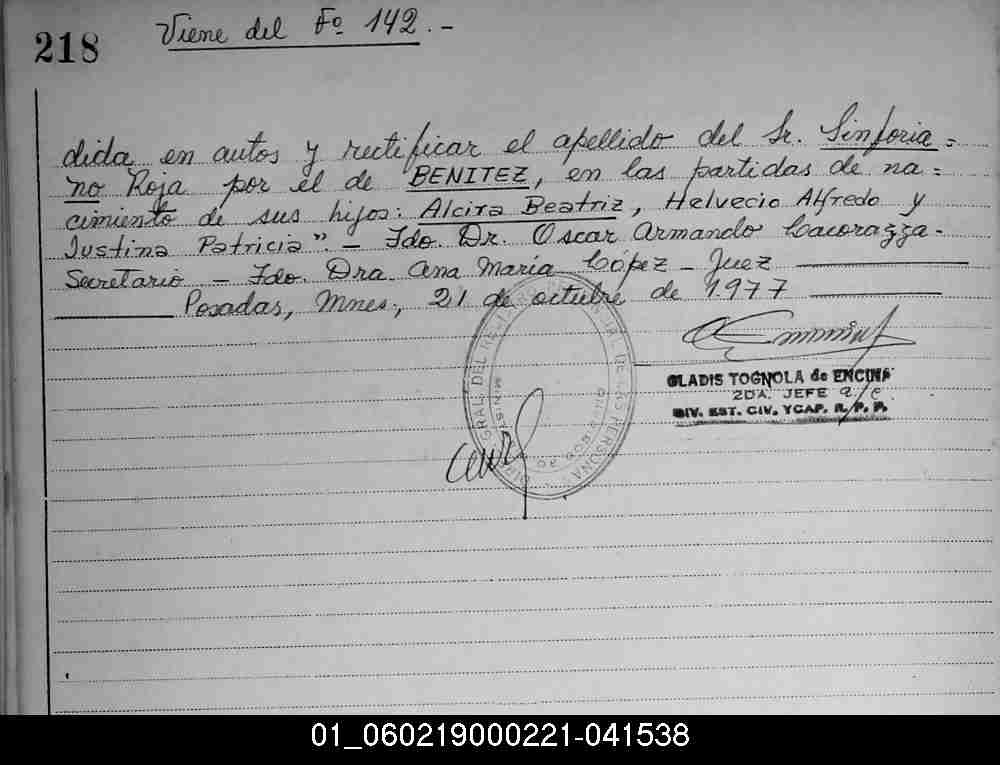 218
Viene del Fº 142.-
dida en autos y rectificar el apellido del Sr. Sinforia=
no Roja por el de BENITEZ, en las partidas de na=
cimiento de sus hijos: Alcira Beatriz, Helvecio Alfredo y
Justina Patricia". - Fdo. Dr. Oscar Armando Cacorazza-
Secretario - Fdo. Dra. Ana María López - Juez
Posadas, Mnes, 21 de octubre de 1.977
GLADIS TOGNOLA de ENCINA
2DA. JEFE a/c
DIV. EST. CIV. YCAP. R. P. P.
01_060219000221-041538